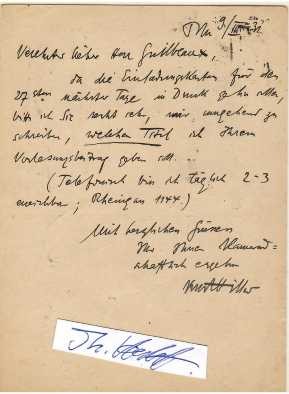 9/III 32
Verehrter lieber Herr Guilbeaux,
da die Einladungskarten für den
27sten nächster Tage in Druck gehn sollen,
bitte ich Sie recht sehr, mir umgehend zu
schreiben, welchen Titel ich Ihrem
Vorlesungsbeitrag geben soll.
(Telefonisch bin ich täglich 2–3
erreichbar; Rheingau 1144)
Mit herzlichen Grüssen
Ihr Ihnen Kamerad-
schaftlich ergebn
Kurt Hiller